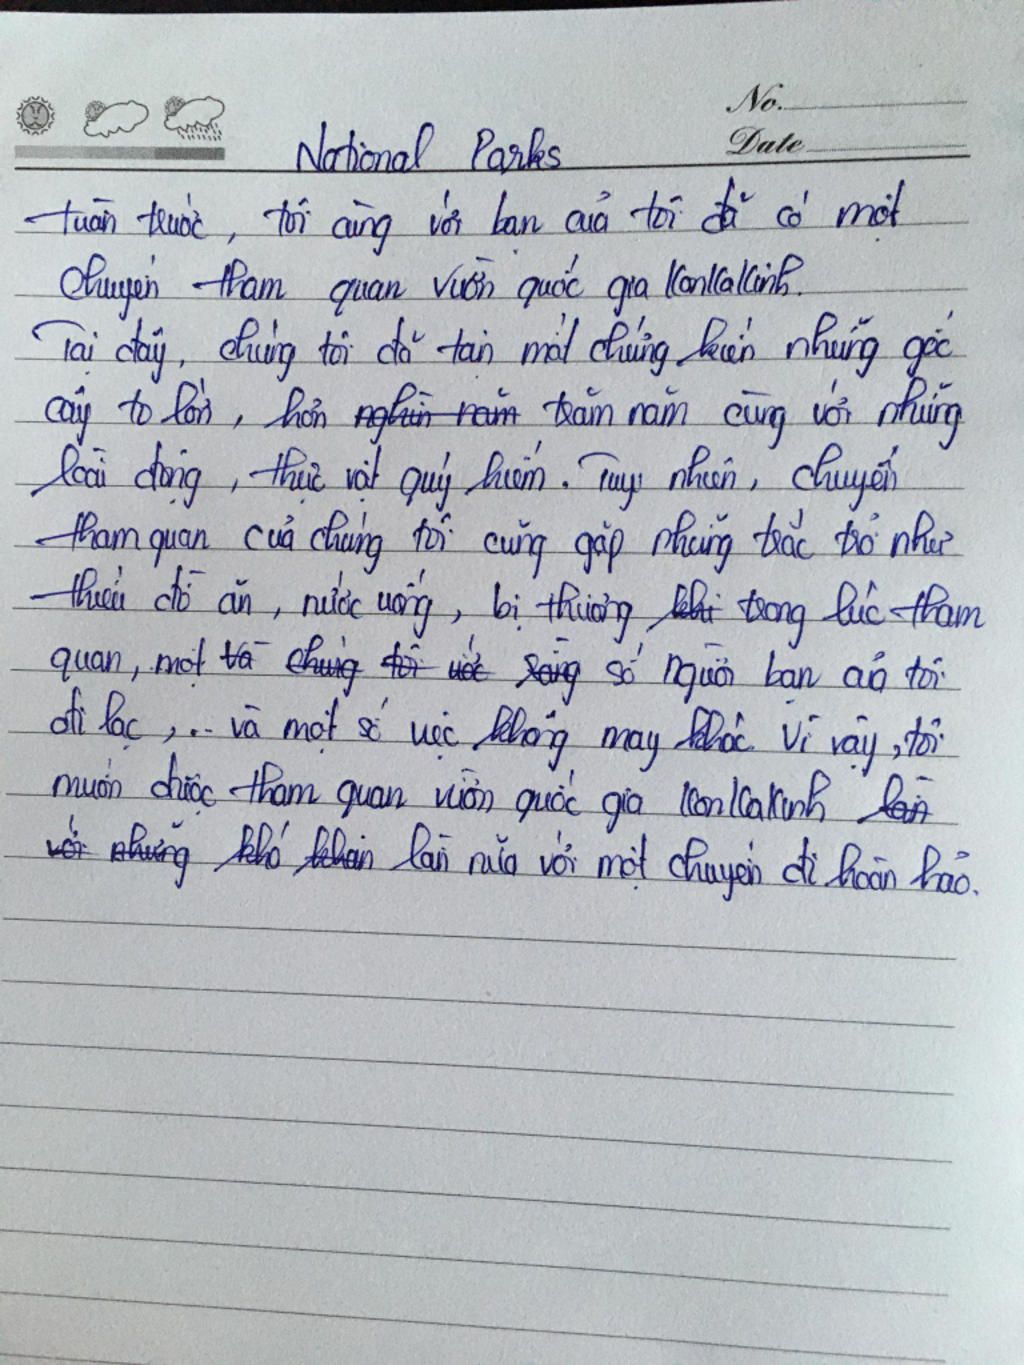 No.
Date
National Parks
tuần trước, tôi cùng với bạn của tôi đã có một
chuyến tham quan vườn quốc gia KonKaKinh.
Tại đây, chúng tôi đã tận mắt chứng kiến những gốc
cây to lớn, hơn nghìn năm trăm năm cùng với những
loài động, thực vật quý hiếm. Tuy nhiên, chuyến
tham quan của chúng tôi cũng gặp những trắc trở như
thiếu đồ ăn, nước uống, bị thương khi trong lúc tham
quan, một và chúng tôi ước rằng số người bạn của tôi
đi lạc,... và một số việc không may khác. Vì vậy, tôi
muốn được tham quan vườn quốc gia KonKaKinh lần
với những khó khăn lần nữa với một chuyến đi hoàn hảo.